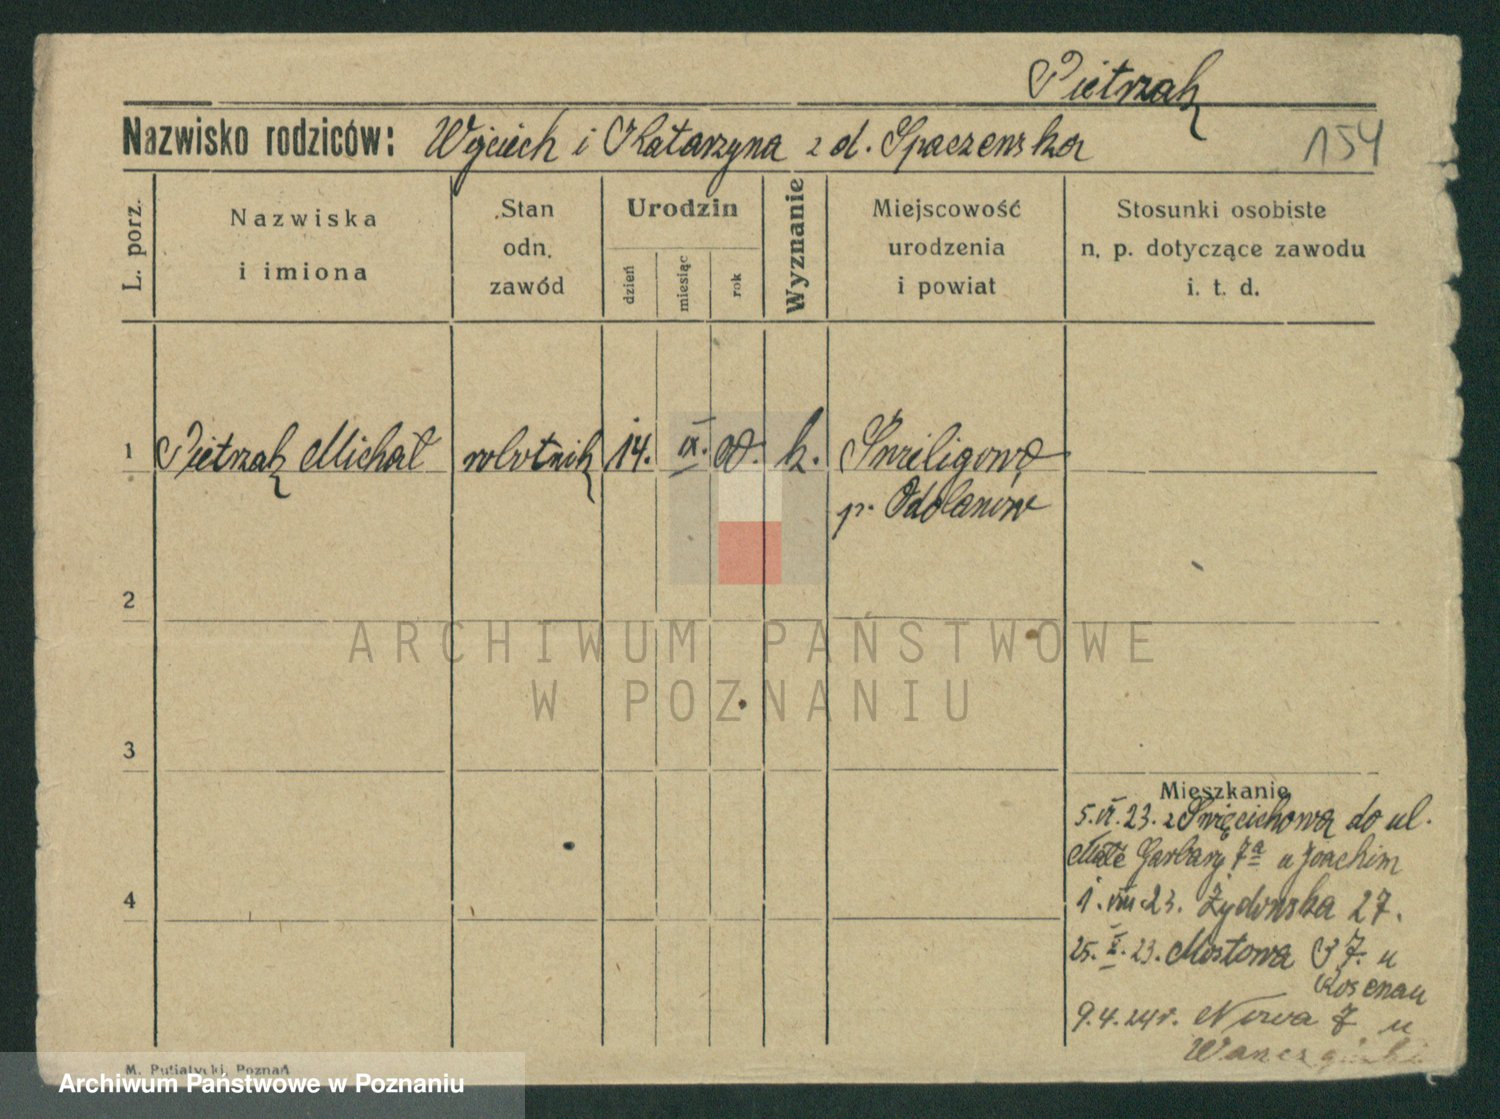 Pietrzak
Nazwisko rodziców: Wojciech i Katarzyna z d. Spaczenska
154
L. porz.
Nazwiska
i imiona
Stan
odn.
zawód
Urodzin
dzień
miesiąc
rok
Wyznanie
Miejscowość
urodzenia
i powiat
Stosunki osobiste
n. p. dotyczące zawodu
i. t. d.
1 Pietrzak Michał robotnik 14. IX. k.
p. Odolanów
2
ARCHIWUM PAŃSTWOWE
W POZNANIU
3
Mieszkanie
5.VI.23. z Święcichowa do ul.
Małe Garbary 7a u Joachim
4
1.VIII.23. Żydowska 27.
25.X.23. Mostowa 7. u
Rosenau
9.4.24r. Nowa 7 u
M. Putiatycki, Poznań
Archiwum Państwowe w Poznaniu